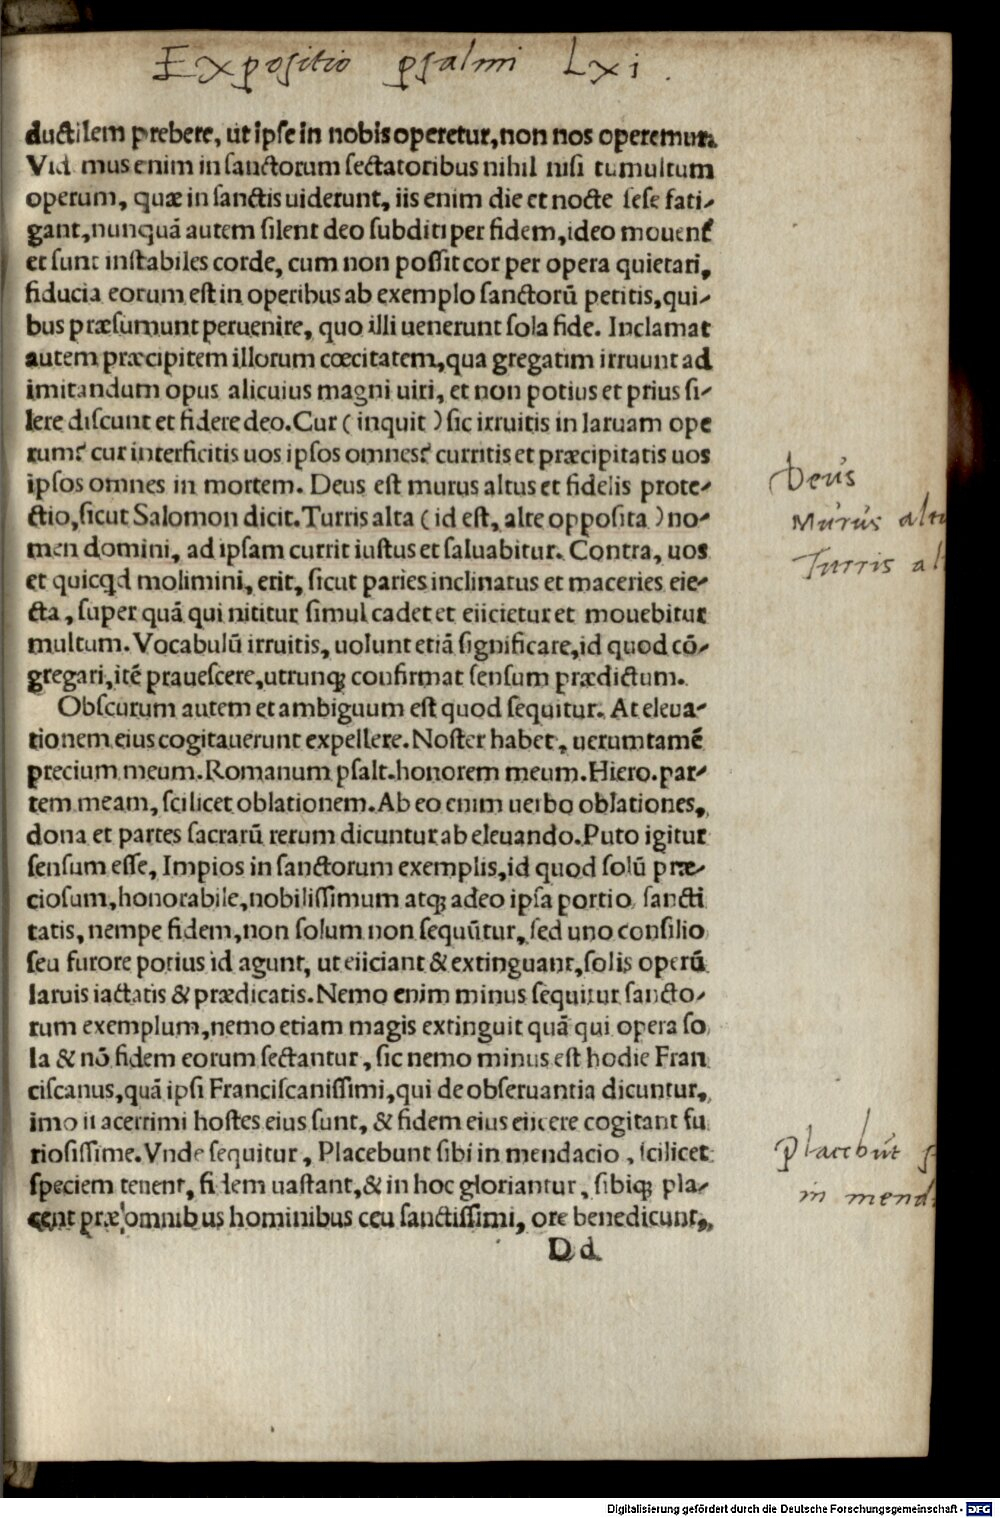 Expositio psalmi Lxi.
ductilem prebere, ut ipse in nobis operetur, non nos operemur.
Vid mus enim in sanctorum sectatoribus nihil nisi tumultum
operum, quæ in sanctis uiderunt, iis enim die et nocte sese fati-
gant, nunquā autem silent deo subditi per fidem, ideo mouent̃
et sunt instabiles corde, cum non possit cor per opera quietari,
fiducia eorum est in operibus ab exemplo sanctorū petitis, qui-
bus præsumunt peruenire, quo illi uenerunt sola fide. Inclamat
autem præcipitem illorum cœcitatem, qua gregatim irruunt ad
imitandum opus alicuius magni uiri, et non potius et prius si-
lere discunt et fidere deo. Cur (inquit) sic irruitis in laruam ope
rum? cur interficitis uos ipsos omnes? curritis et præcipitatis uos
ipsos omnes in mortem. Deus est murus altus et fidelis prote-
ctio, sicut Salomon dicit. Turris alta (id est, alte opposita) no-
men domini, ad ipsam currit iustus et saluabitur. Contra, uos
et quicꝗd molimini, erit, sicut paries inclinatus et maceries eie-
cta, super quā qui nititur simul cadet et eiicietur et mouebitur
multum. Vocabulū irruitis, uolunt etiā significare, id quod cō-
gregari, itē prauescere, utrunqꝫ confirmat sensum prædictum.
Obscurum autem et ambiguum est quod sequitur. At eleua-
tionem eius cogitauerunt expellere. Noster habet, uerumtamē
precium meum. Romanum psalt. honorem meum. Hiero. par-
tem meam, scilicet oblationem. Ab eo enim uerbo oblationes,
dona et partes sacrarū rerum dicuntur ab eleuando. Puto igitur
sensum esse, Impios in sanctorum exemplis, id quod solū præ-
ciosum, honorabile, nobilissimum atqꝫ adeo ipsa portio sancti
tatis, nempe fidem, non solum non sequūtur, sed uno consilio
seu furore potius id agunt, ut eiiciant & extinguant, solis operū
laruis iactatis & prædicatis. Nemo enim minus sequitur sancto-
rum exemplum, nemo etiam magis extinguit quā qui opera so
la & nō fidem eorum sectantur, sic nemo minus est hodie Fran
ciscanus, quā ipsi Franciscanissimi, qui de obseruantia dicuntur,
imo ii acerrimi hostes eius sunt, & fidem eius eiicere cogitant fu
riosissime. Vnde sequitur, Placebunt sibi in mendacio, scilicet
speciem tenent, fidem uastant, & in hoc gloriantur, sibiqꝫ pla-
cent præ omnibus hominibus ceu sanctissimi, ore benedicunt,
Dd
Deus
Murus altu
Turris al
Placebūt s
in mend
Digitalisierung gefördert durch die Deutsche Forschungsgemeinschaft - DFG